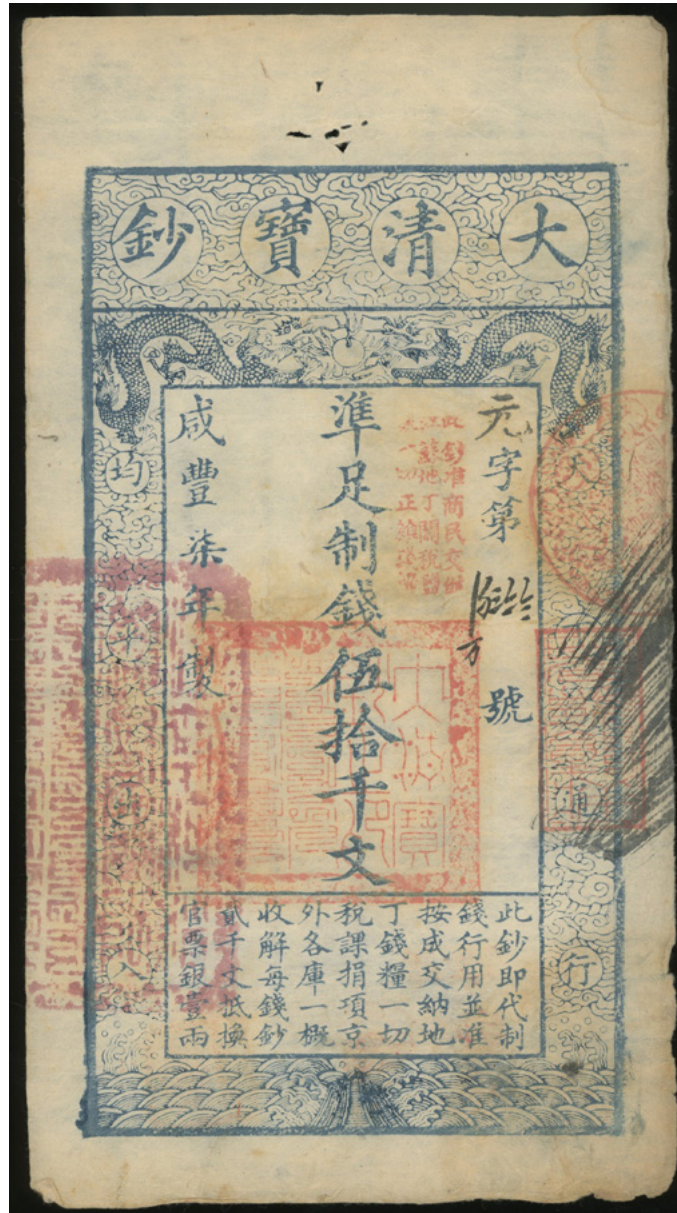 大清寶鈔
天下通行
均平出入
元字第 號
準足制錢伍拾千文
咸豐柒年製
此鈔即代制
錢行用並准
按成交納地
丁錢糧一切
稅課捐項京
外各庫一概
收解每錢鈔
貳千文抵換
官票銀壹兩